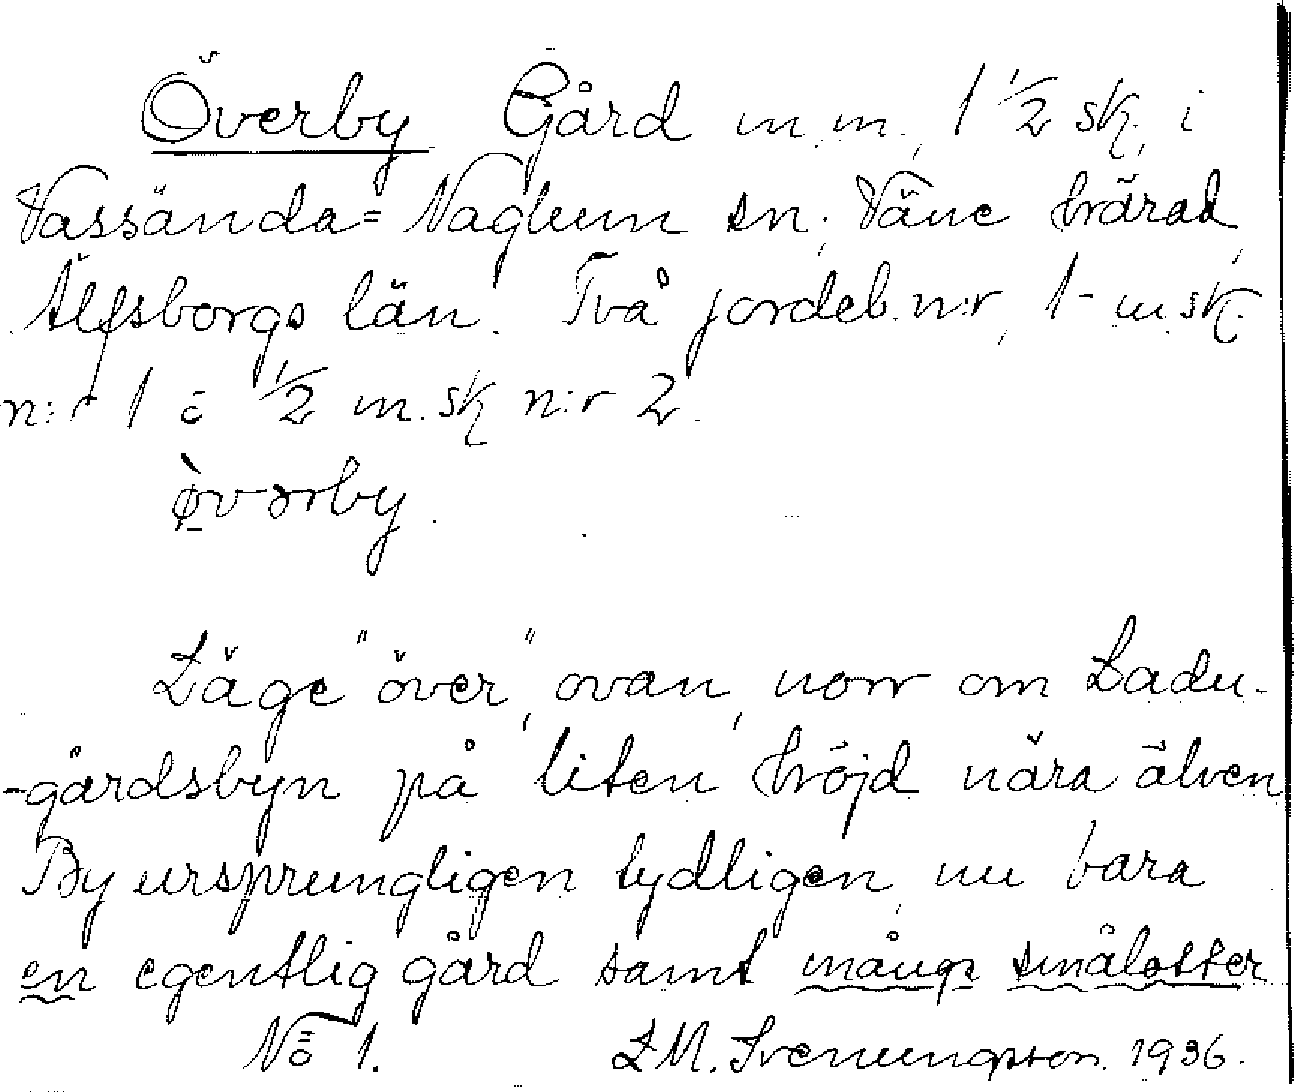 Överby Gård m.m., 1 1/2 sk, i
Vassända=Naglum sn; Väne härad,
Älfsborgs län. Två jordeb.n:r, 1- m.sk.
n:r 1 o 1/2 m.sk n:r 2.
Läge "över", ovan, norr om Ladu-
-gårdsbyn på liten höjd nära älven
By ursprungligen tydligen, nu bara
en egentlig gård samt många smålotter
No 1. Z.M. Svenungsson. 1936.